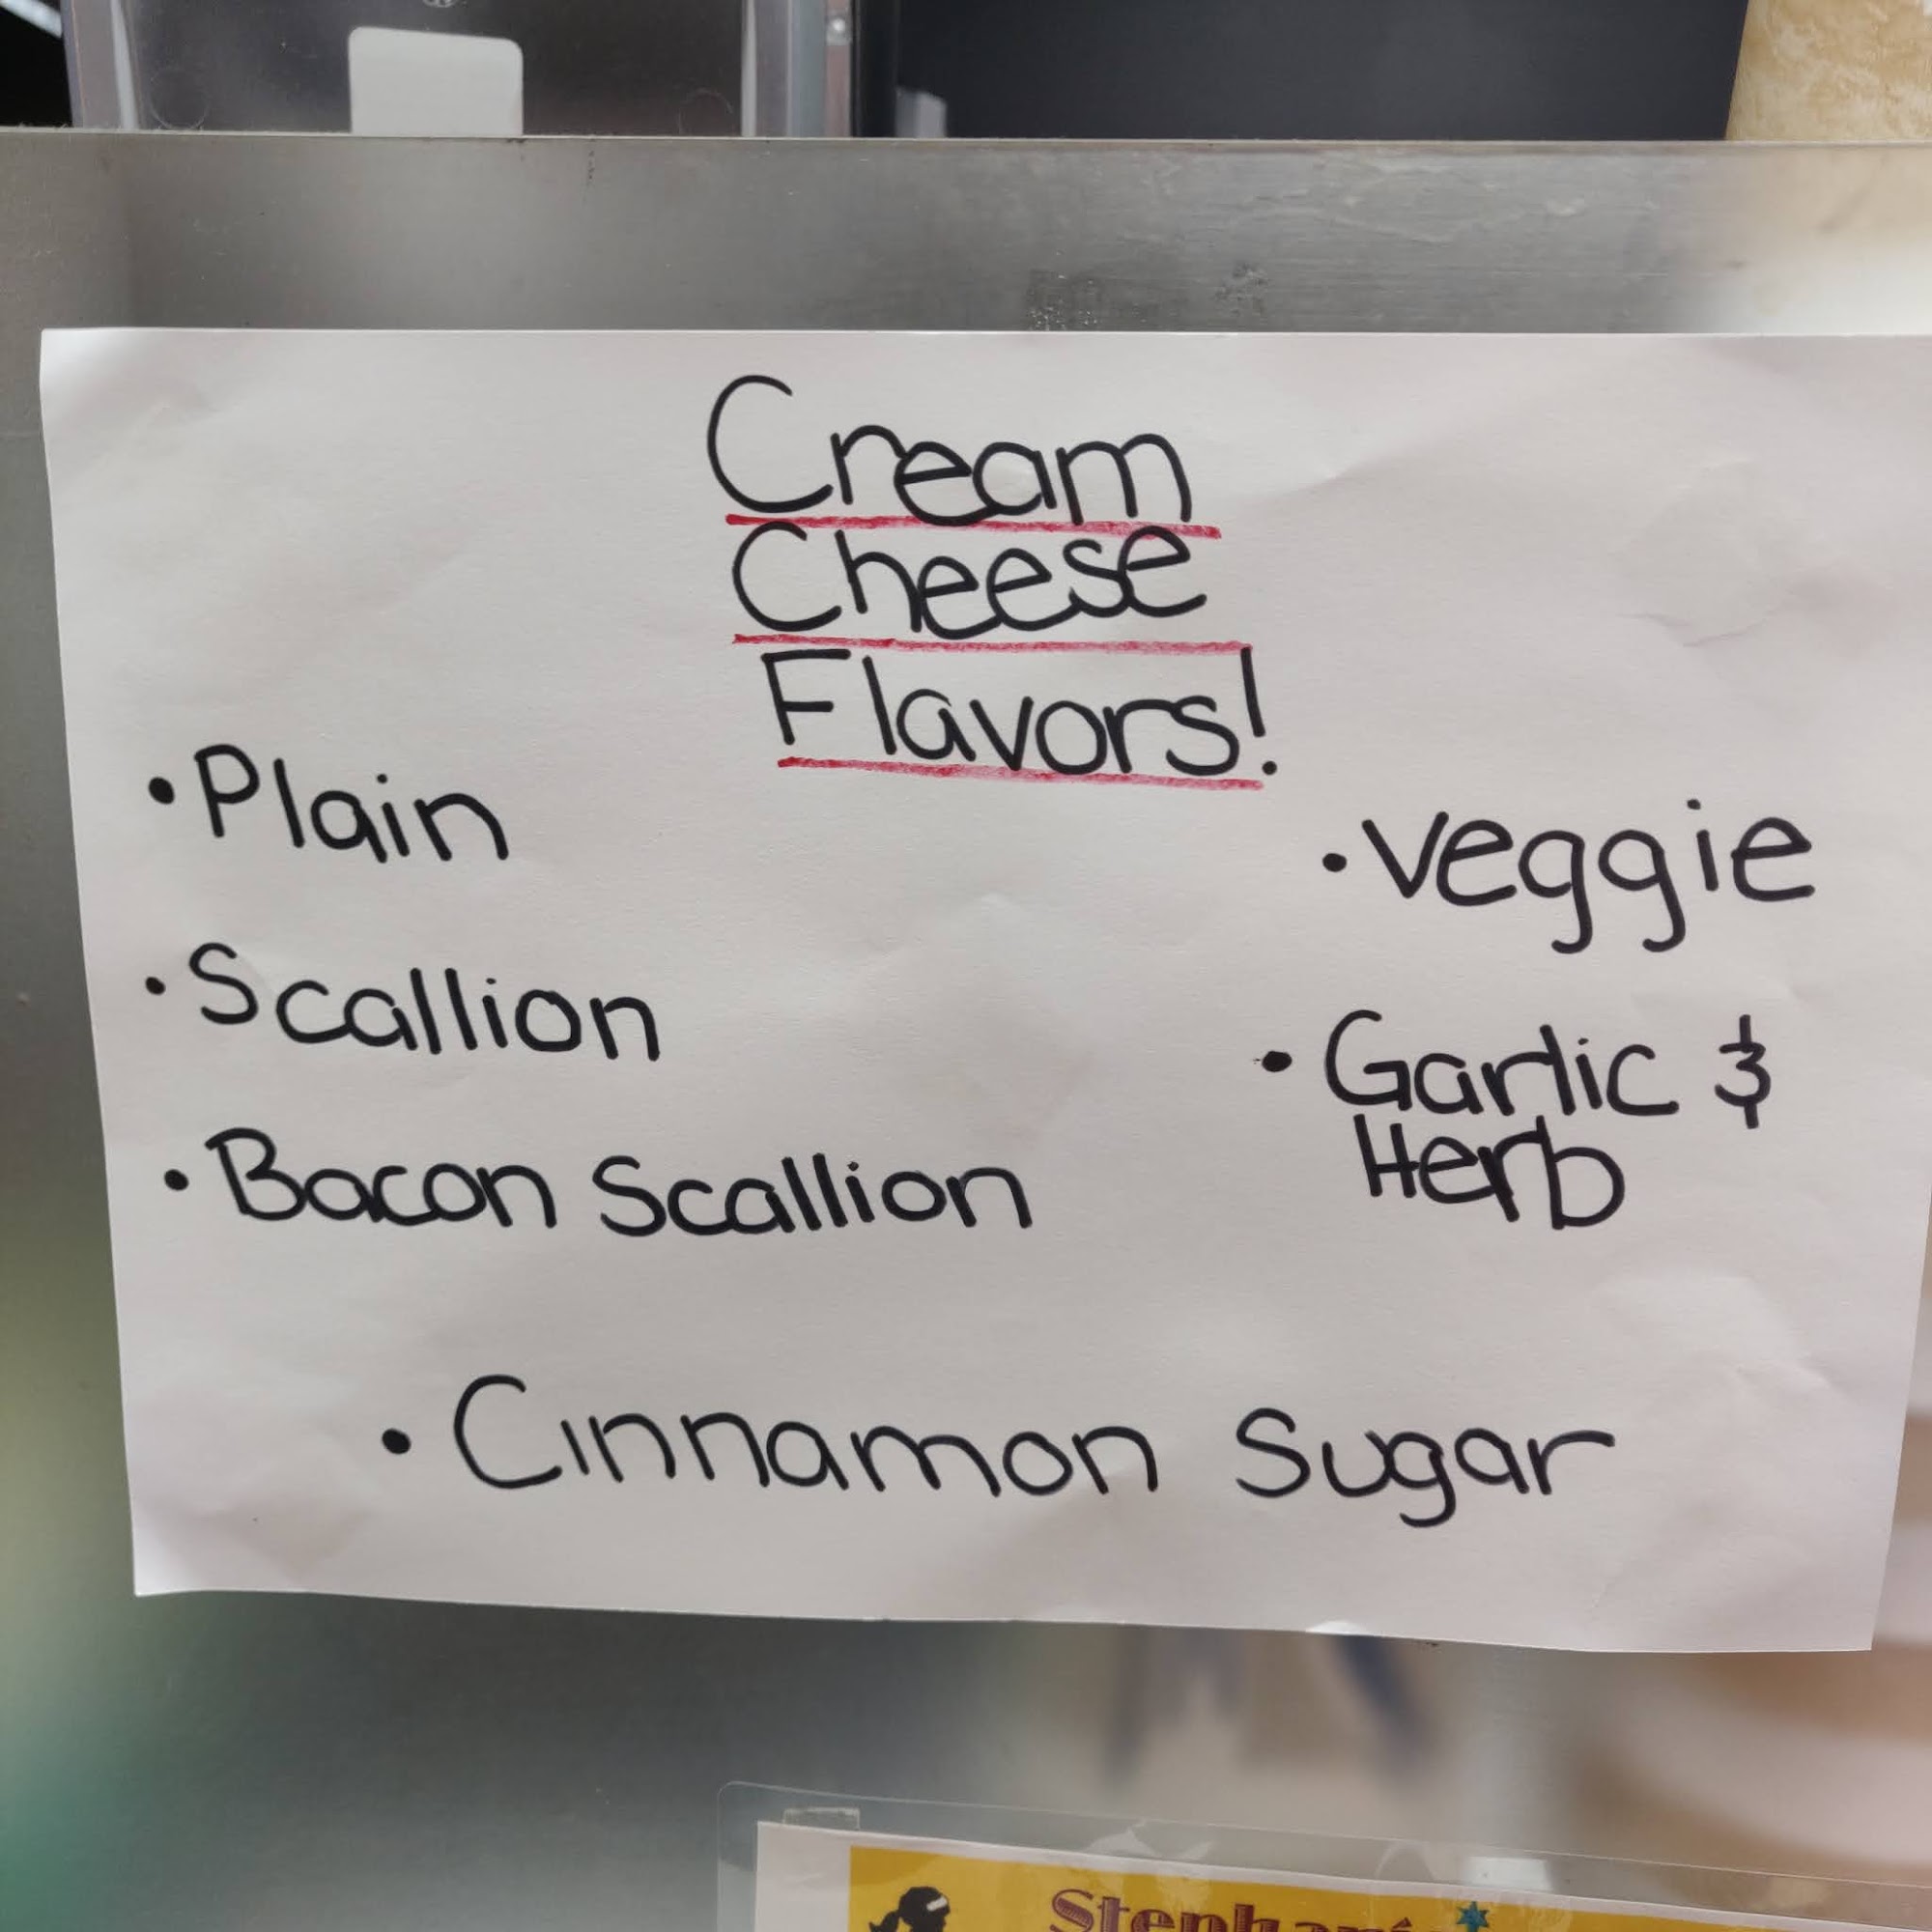 Cream
Cheese
Flavors!
• Plain
• Scallion
• Bacon Scallion
• Veggie
• Garlic &
Herb
• Cinnamon Sugar